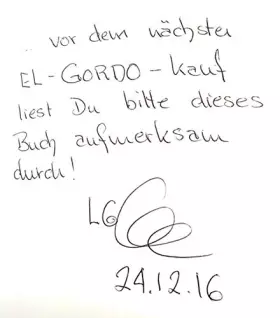 .. vor dem nächsten
EL-GORDO-Kauf
liest Du bitte dieses
Buch aufmerksam
durch!
LG
24.12.16